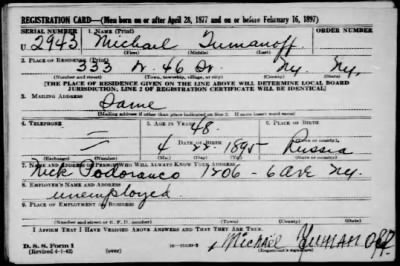 REGISTRATION CARD—(Men born on or after April 28, 1877 and on or before February 16, 1897)
SERIAL NUMBER 1. NAME (Print) ORDER NUMBER
U 2943 Michael Tumanoff
(First) (Middle) (Last)
2. PLACE OF RESIDENCE (Print)
333 W. 46 St. Ny Ny.
(Number and street) (Town, township, village, or city) (County) (State)
[THE PLACE OF RESIDENCE GIVEN ON THE LINE ABOVE WILL DETERMINE LOCAL BOARD
JURISDICTION; LINE 2 OF REGISTRATION CERTIFICATE WILL BE IDENTICAL]
3. MAILING ADDRESS
Same
[Mailing address if other than place indicated on line 2. If same insert word same]
4. TELEPHONE 5. AGE IN YEARS 6. PLACE OF BIRTH
48
DATE OF BIRTH
4 22 1895 Russia
(Exchange) (Number) (Mo.) (Day) (Yr.) (State or country)
7. NAME AND ADDRESS OF PERSON WHO WILL ALWAYS KNOW YOUR ADDRESS
Nick 1206 - 6 ave Ny.
8. EMPLOYER'S NAME AND ADDRESS
unemployed
9. PLACE OF EMPLOYMENT OR BUSINESS
(Number and street or R. F. D. number) (Town) (County) (State)
I AFFIRM THAT I HAVE VERIFIED ABOVE ANSWERS AND THAT THEY ARE TRUE.
D. S. S. Form 1
(Revised 4-1-42) (over) Michael TUMANOFF
(Registrant's signature)